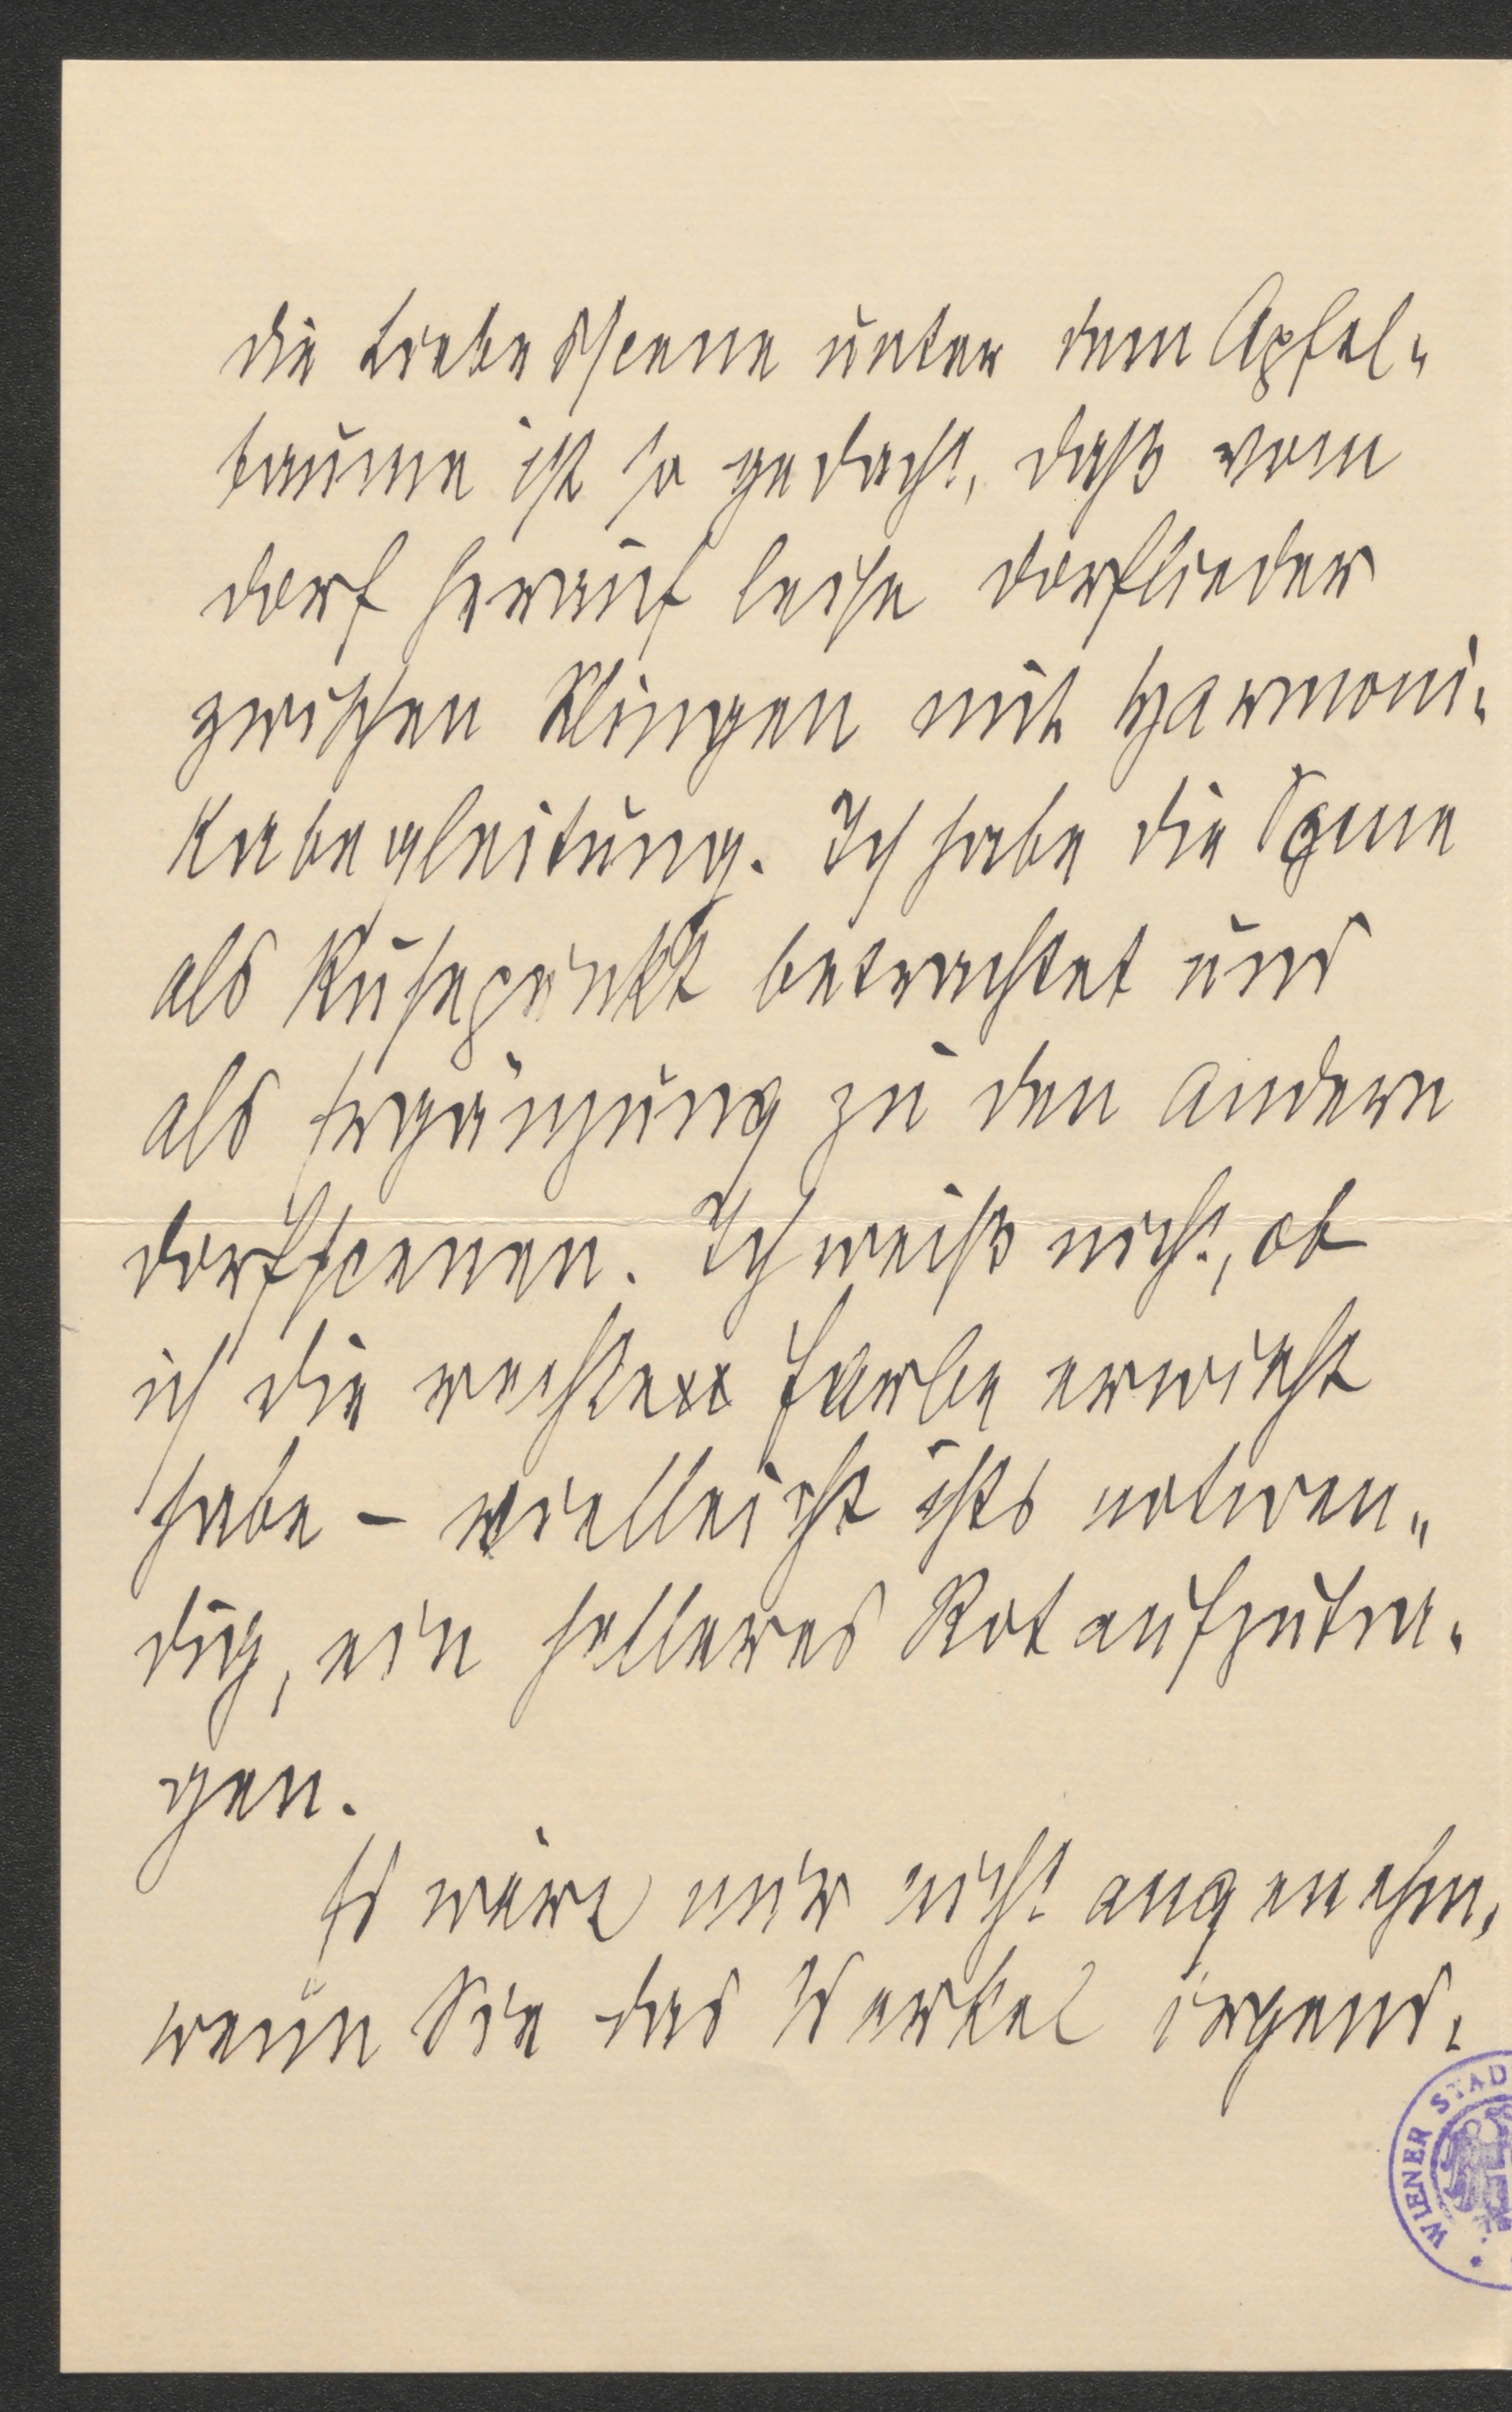 die Liebesscene unter dem Apfel-
baume ist so gedacht, daß vom
Dorf herauf leise Dorflieder
zwischen klingen mit Harmoni-
kabegleitung. Ich habe die Scene
als Ruhepunkt betrachtet und
als Ergänzung zu den andern
Dorfscenen. Ich weiß nicht, ob
ich die rechte Farbe erwischt
habe – vielleicht ists notwen-
dig, ein helleres Rot aufzutra-
gen.
Es wäre mir nicht angenehm,
wenn Sie das Werkel irgend-
WIENER STAD